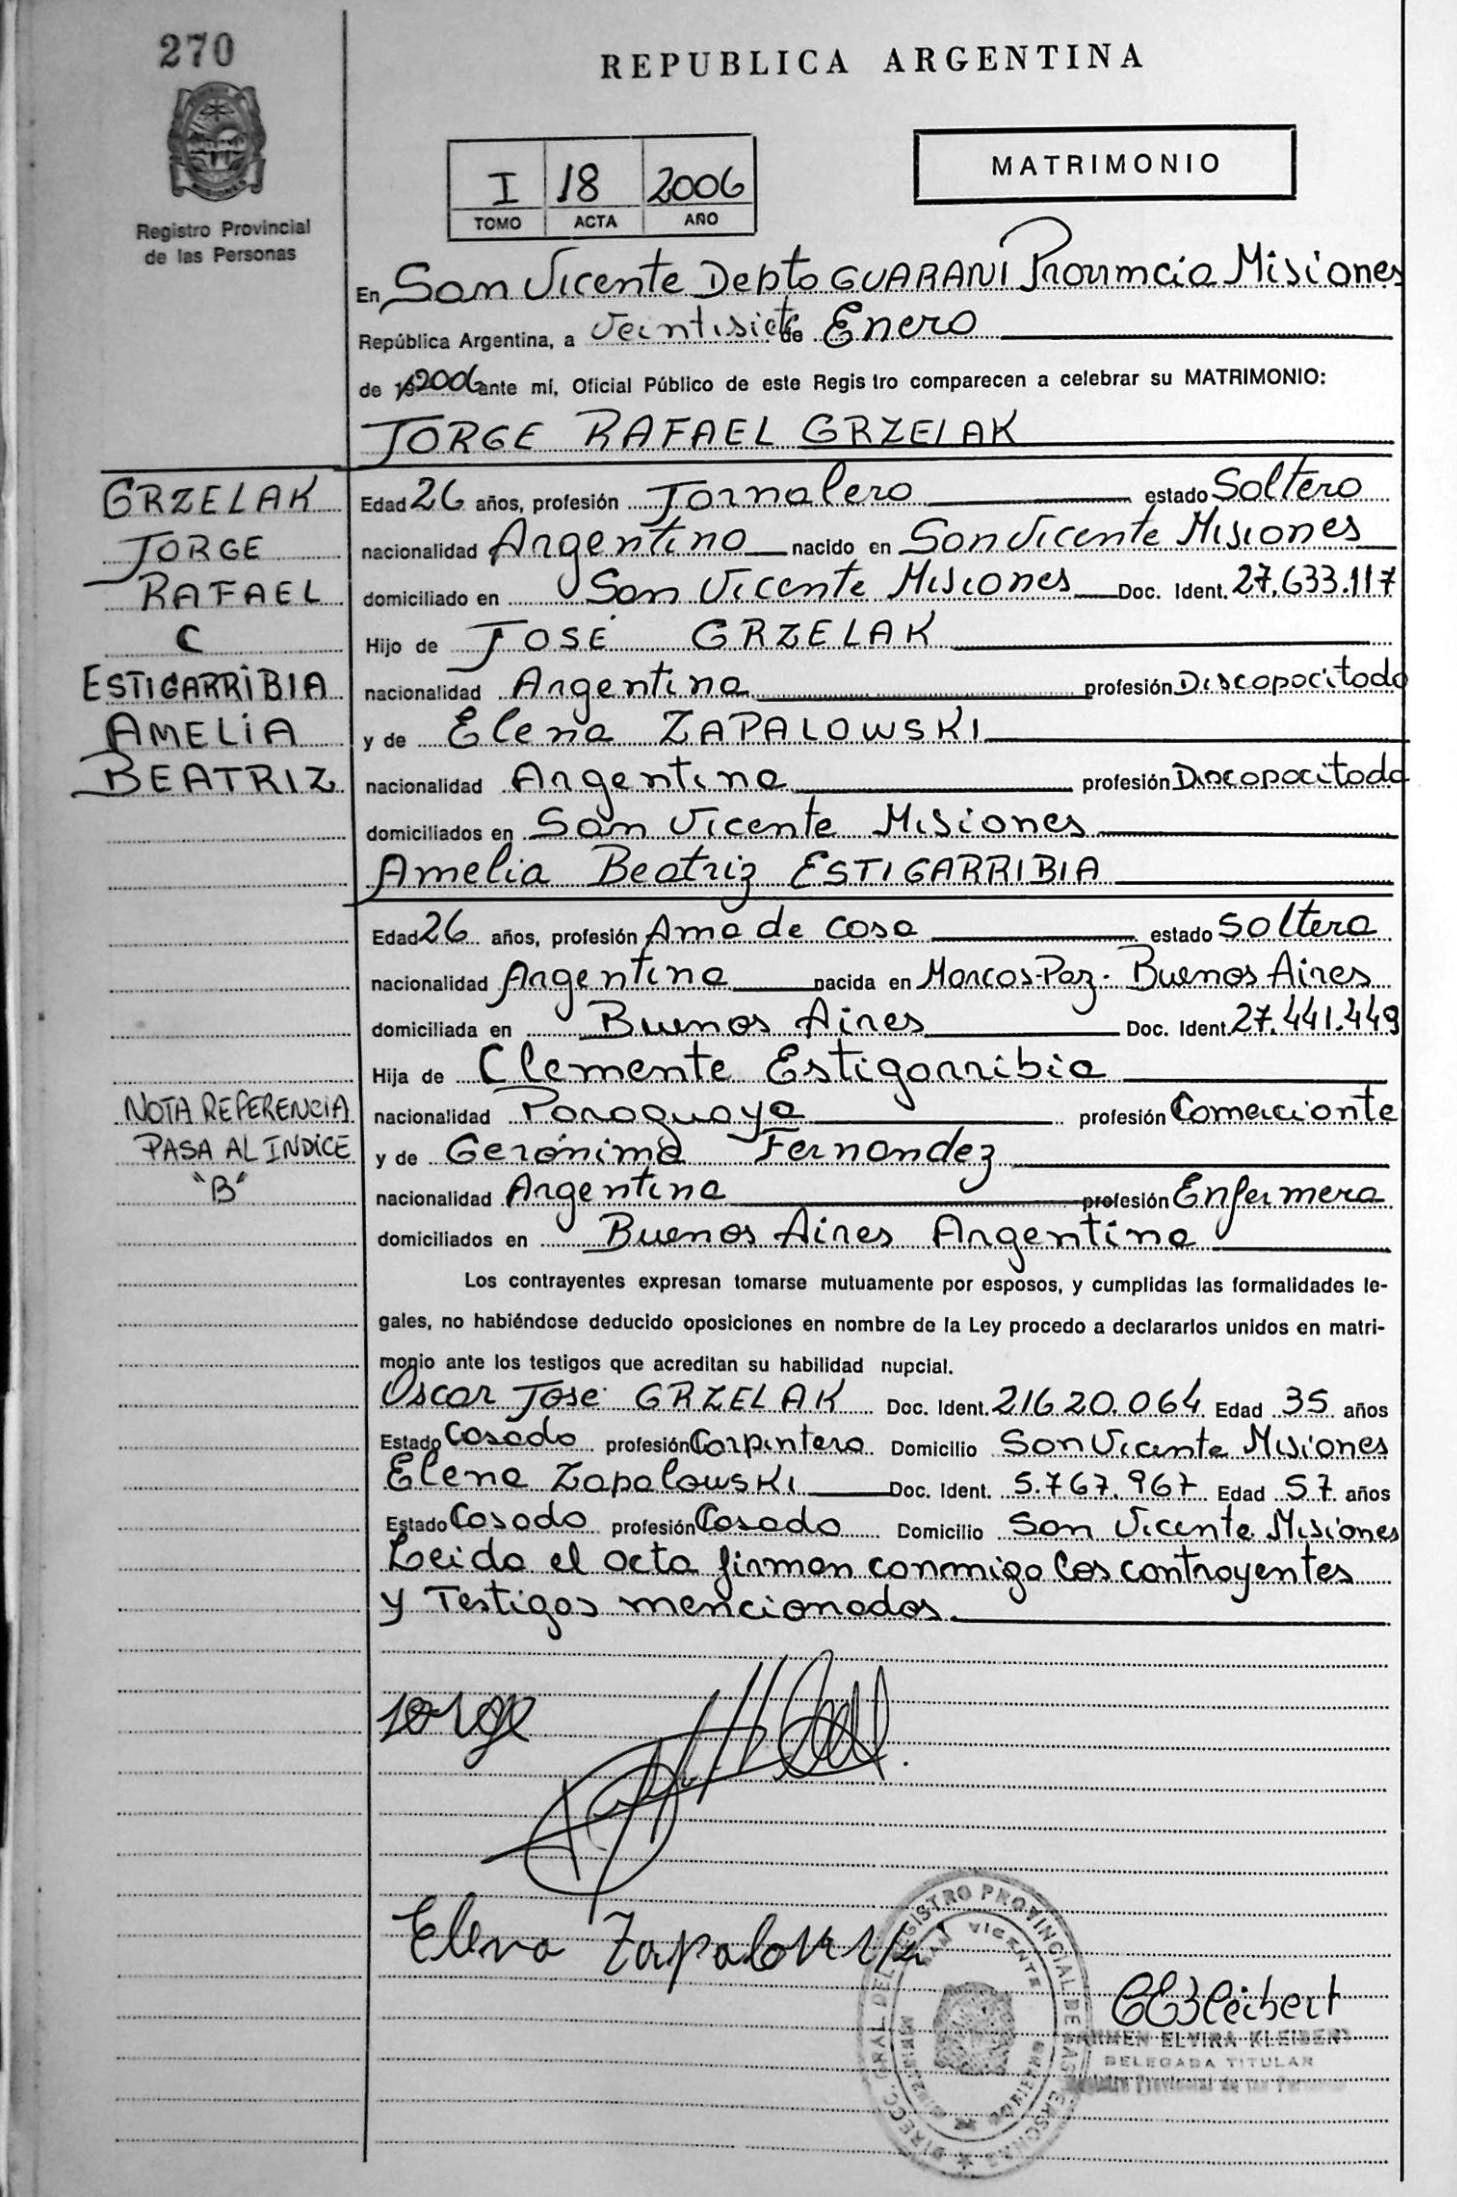 270
REPUBLICA ARGENTINA
MATRIMONIO
I 18 2006
TOMO ACTA AÑO
Registro Provincial
de las Personas
En San Vicente Depto GUARANI Provincia Misiones
República Argentina, a Veintisiete de Enero
de 2006 ante mí, Oficial Público de este Regis tro comparecen a celebrar su MATRIMONIO:
JORGE RAFAEL GRZELAK
GRZELAK
JORGE
RAFAEL
C
ESTIGARRIBIA
AMELIA
BEATRIZ
Edad 26 años, profesión Jornalero estado Soltero
nacionalidad Argentino nacido en San Vicente Misiones
domiciliado en San Vicente Misiones Doc. Ident. 27.633.117
Hijo de JOSÉ GRZELAK
nacionalidad Argentina profesión Discapacitado
y de Elena ZAPALOWSKI
nacionalidad Argentina profesión Discapacitada
domiciliados en San Vicente Misiones
Amelia Beatriz ESTIGARRIBIA
Edad 26 años, profesión Ama de casa estado Soltera
nacionalidad Argentina nacida en Marcos-Paz- Buenos Aires
domiciliada en Buenos Aires Doc. Ident. 27.441.449
Hija de Clemente Estigarribia
NOTA REFERENCIA
PASA AL INDICE
"B"
nacionalidad Paraguaya profesión Comerciante
y de Gerónima Fernandez
nacionalidad Argentina profesión Enfermera
domiciliados en Buenos Aires Argentina
Los contrayentes expresan tomarse mutuamente por esposos, y cumplidas las formalidades le-
gales, no habiéndose deducido oposiciones en nombre de la Ley procedo a declararlos unidos en matri-
monio ante los testigos que acreditan su habilidad nupcial.
Oscar José GRZELAK Doc. Ident. 21620.064 Edad 35 años
Estado Casado profesión Carpintero Domicilio San Vicente Misiones
Elena Zapalowski Doc. Ident. 5.767.967 Edad 57 años
Estado Casada profesión Casada Domicilio San Vicente Misiones
Leida el acta firman conmigo los contrayentes
y Testigos mencionados.
Jorge
Elena Zapalowski
DIRECC. GRAL DEL REGISTRO PROVINCIAL DE LAS PERSONAS
SAN VICENTE
CEKleibert
CARMEN ELVIRA KLEIBERT
DELEGADA TITULAR
Registro Provincial de las Personas